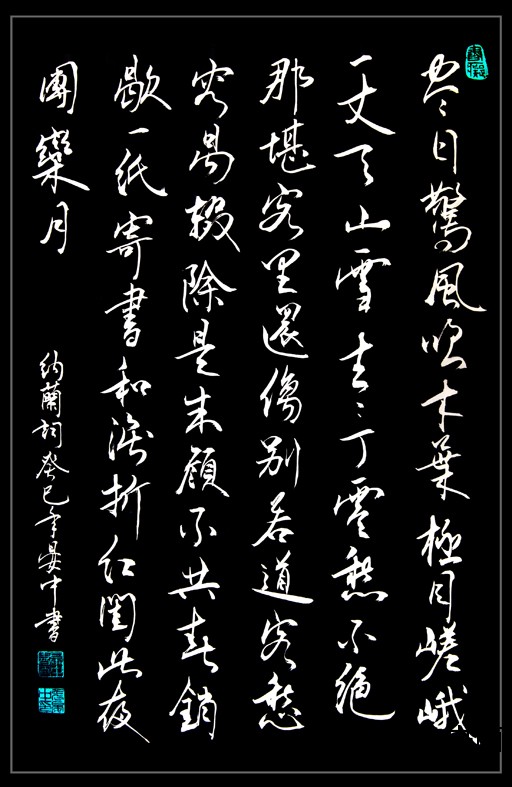 尽日驚風吹木葉極目嵯峨
一丈天山雪去〻丁零愁不絕
那堪客里還傷別若道客愁
容易輟除是朱顏不共春銷
歇一紙寄書和淚折紅閨此夜
團欒月
納蘭詞癸巳年晏中書